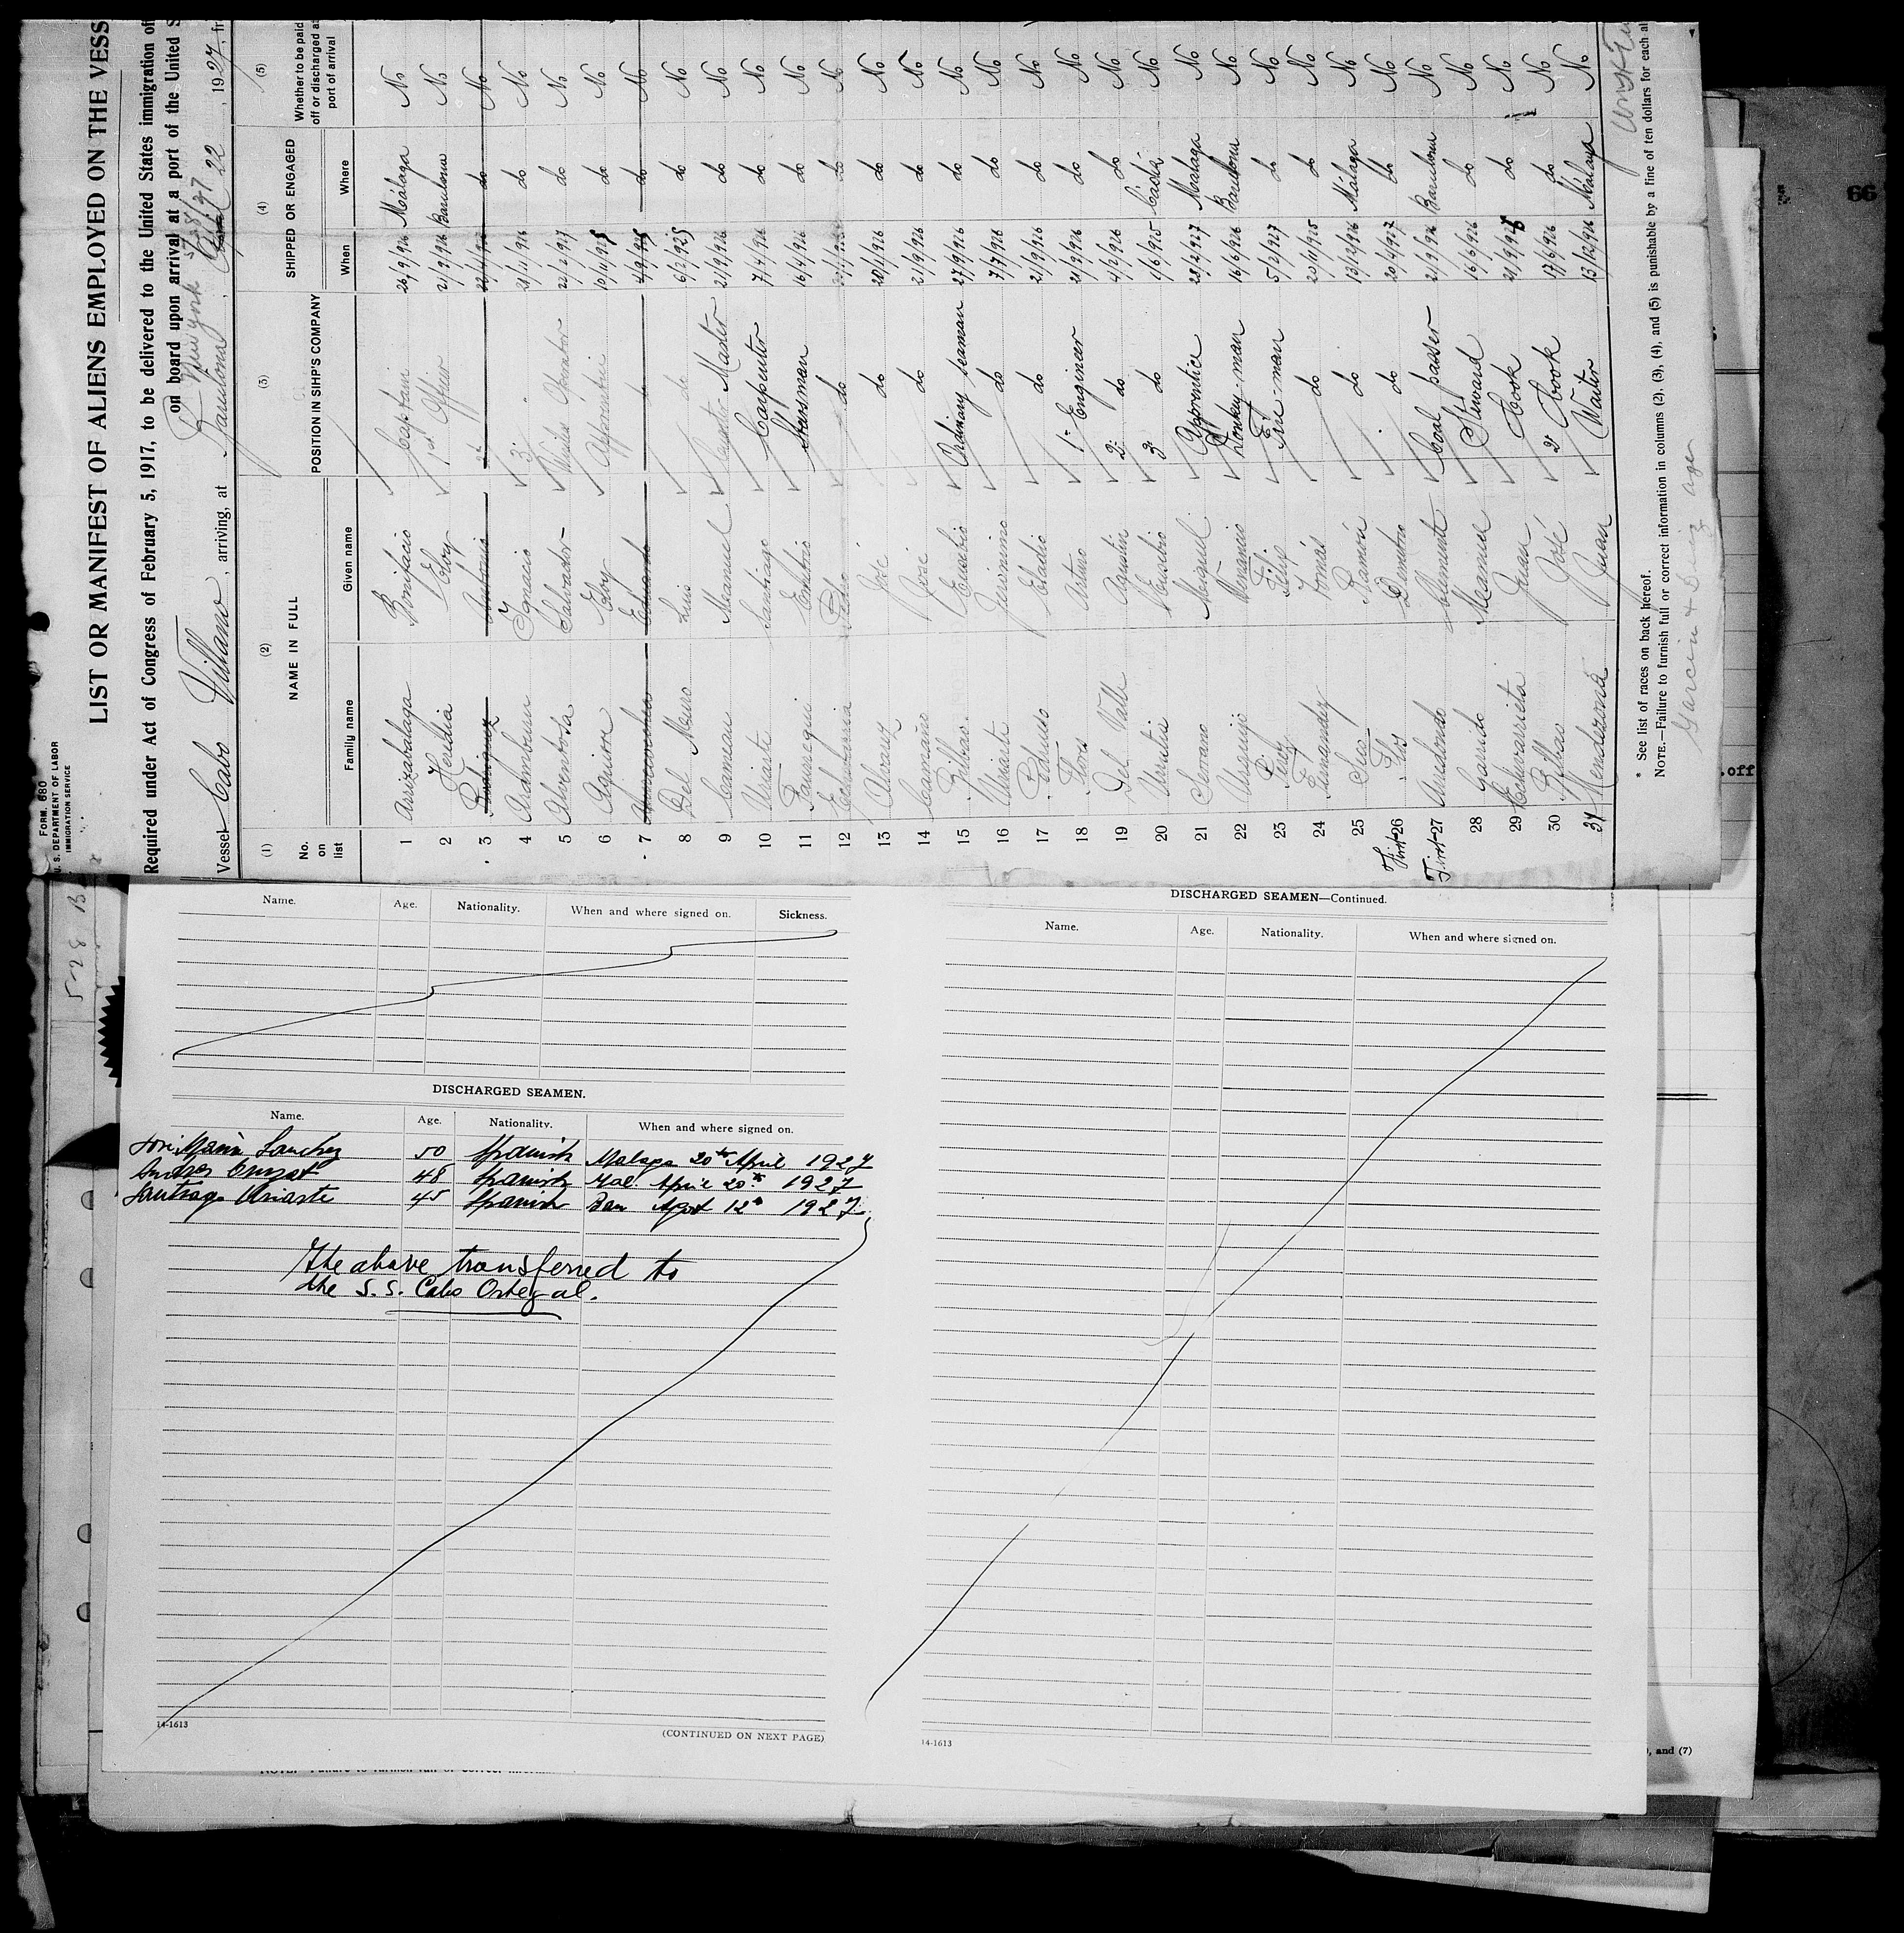 FORM 680
U. S. DEPARTMENT OF LABOR
IMMIGRATION SERVICE
LIST OR MANIFEST OF ALIENS EMPLOYED ON THE VESS
Required under Act of Congress of February 5, 1917, to be delivered to the United States immigration of
on board upon arrival at a port of the United S
New york 5/28/27
Vessel Cabo Villano, arriving, at Barcelona, April 22, 1927, fr
(1) (2) (3) (4) (5)
No. on list NAME IN FULL POSITION IN SIHP'S COMPANY SHIPPED OR ENGAGED Whether to be paid off or discharged at port of arrival
Family name Given name When Where
1 Arrizabalaga Bonifacio Captain 26/9/926 Málaga No
2 Heredia Eloy 1st Officer 21/9/926 Barcelona No
3 Rodriguez Antonio 2º do No
4 Arámburu Ygnacio 3º 21/11/926 do No
5 Alventosa Salvador Wireles Operator 22/2/927 do No
6 Aguirre Eloy Apprentice 10/11/925 do No
7 Eduardo 4/9/925 do No
8 Del Luis do 6/2/925 do No
9 Cameau Manuel Master 21/9/926 do No
10 Uriarte Santiago Carpenter 7/4/926 do No
11 Emeterio Stearsman 16/4/926 do No
12 Echevarria Pedro do do No
13 Alvarez José do 20/1/926 do No
14 Camaño José do 21/9/926 do No
15 Bilbao Eusebio Ordinary seaman 27/9/926 do No
16 Uriarte Jerónimo do 7/7/926 do No
17 Eladio do 21/9/926 do No
18 Arturo 1º Engineer 21/9/926 do No
19 Del Valle Agustin 2º do 4/2/926 do No
20 Urrutia Eusebio 3º do 1/6/925 Cádiz No
21 Serrano Miguel Apprentice 28/2/927 Málaga No
22 Venancio Donkey-man 16/6/926 Barcelona No
23 Perez Felip Fire-man 5/2/927 do No
24 Fernandez Tomás do 20/11/925 do No
25 Ramón do 13/2/926 Málaga No
First 26 Demetrio 20/4/927 do No
First 27 Arredondo Clemente Coal passer 21/9/926 Barcelona No
28 Garrido Manuel Steward 16/6/926 do No
29 Echevarrieta Juan Cook 21/9/925 do No
30 Bilbao José 2º Cook 17/6/926 do No
31 Mendezona Juan Waiter 13/2/926 Málaga No
* See list of races on back hereof.
NOTE.—Failure to furnish full or correct information in columns (2), (3), (4), and (5) is punishable by a fine of ten dollars for each al
Garcia & Diaz Agen
5-28 B
66
.off
Name. Age. Nationality. When and where signed on. Sickness.
DISCHARGED SEAMEN.
Name. Age. Nationality. When and where signed on.
José Maria Sanchez 50 Spanish Malaga 20th April 1927
Andres Cruzat 48 Spanish Mal. April 20th 1927
Santiago Uriarte 45 Spanish Bar Agost 12th 1927
The above transferred to
the S.S. Cabo Ortegal.
14-1613
(CONTINUED ON NEXT PAGE)
DISCHARGED SEAMEN—Continued.
Name. Age. Nationality. When and where signed on.
14-1613
, and (7)